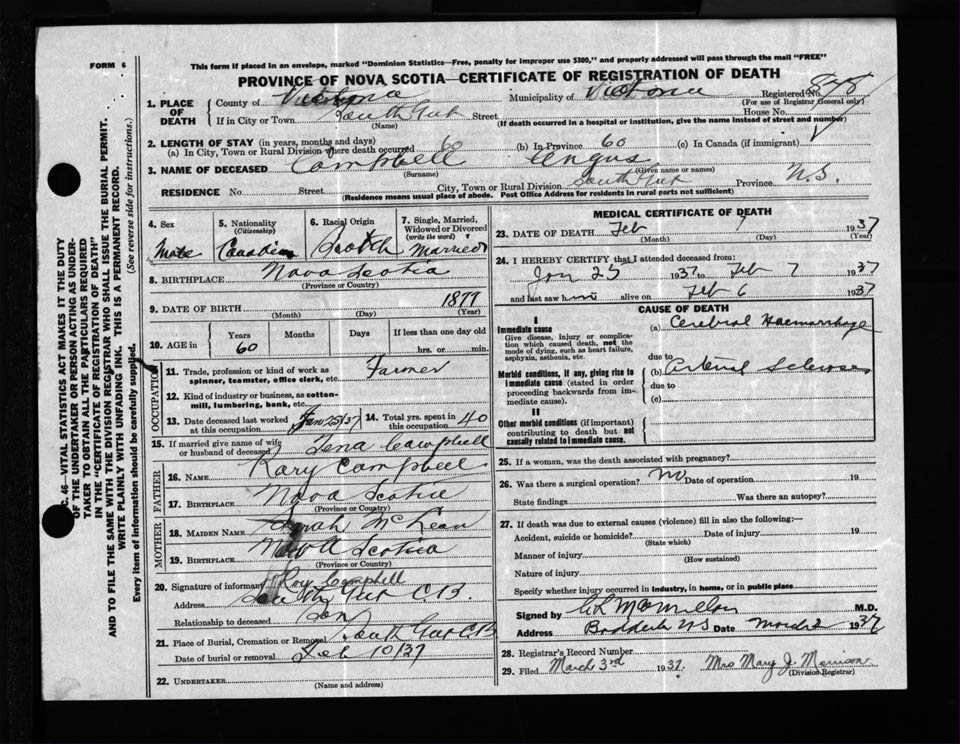 FORM 6
This form if placed in an envelope, marked "Dominion Statistics—Free, penalty for improper use $300," and properly addressed will pass through the mail "FREE"
PROVINCE OF NOVA SCOTIA—CERTIFICATE OF REGISTRATION OF DEATH
1. PLACE OF DEATH
County of Victoria Municipality of Victoria Registered No. 878
(For use of Registrar General only)
If in City or Town South Gut Street House No.
(Name) (If death occurred in a hospital or institution, give the name instead of street and number)
2. LENGTH OF STAY (in years, months and days)
(a) In City, Town or Rural Division where death occurred 60 (b) In Province 60 (c) In Canada (if immigrant)
3. NAME OF DECEASED Campbell Angus
(Surname) (Given name or names)
RESIDENCE No. Street City, Town or Rural Division South Gut Province N.S.
(Residence means usual place of abode. Post Office Address for residents in rural parts not sufficient)
4. Sex Male
5. Nationality (Citizenship) Canadian
6. Racial Origin Scotch
7. Single, Married, Widowed or Divorced (write the word) Married
8. BIRTHPLACE Nova Scotia
(Province or Country)
9. DATE OF BIRTH 1877
(Month) (Day) (Year)
10. AGE in Years 60 Months Days If less than one day old
hrs. or min.
OCCUPATION
11. Trade, profession or kind of work as spinner, teamster, office clerk, etc. Farmer
12. Kind of industry or business, as cotton-mill, lumbering, bank, etc.
13. Date deceased last worked at this occupation Jan 25/37
14. Total yrs. spent in this occupation 40
15. If married give name of wife or husband of deceased Tena Campbell
FATHER
16. NAME Rory Campbell
17. BIRTHPLACE Nova Scotia
(Province or Country)
MOTHER
18. MAIDEN NAME Sarah McLean
19. BIRTHPLACE Nova Scotia
(Province or Country)
20. Signature of informant Roy Campbell
Address South Gut C.B.
Relationship to deceased Son
21. Place of Burial, Cremation or Removal South Gut C.B.
Date of burial or removal Feb 10/37
22. UNDERTAKER
(Name and address)
MEDICAL CERTIFICATE OF DEATH
23. DATE OF DEATH Feb 7 1937
(Month) (Day) (Year)
24. I HEREBY CERTIFY that I attended deceased from:
Jan 25 1937 to Feb 7 1937
and last saw him alive on Feb 6 1937
CAUSE OF DEATH
I
Immediate cause
Give disease, injury or complication which caused death, not the mode of dying, such as heart failure, asphyxia, asthenia, etc.
(a) Cerebral Haemorrhage
due to
Morbid conditions, if any, giving rise to immediate cause (stated in order proceeding backwards from immediate cause).
(b) Arterial Sclerosis
due to
(c)
II
Other morbid conditions (if important) contributing to death but not causally related to immediate cause.
25. If a woman, was the death associated with pregnancy?
26. Was there a surgical operation? No Date of operation 19
State findings Was there an autopsy?
27. If death was due to external causes (violence) fill in also the following:—
Accident, suicide or homicide? Date of injury 19
(State which)
Manner of injury
(How sustained)
Nature of injury
Specify whether injury occurred in industry, in home, or in public place
Signed by McMillan M.D.
Address Baddeck NS Date March 2 1937
28. Registrar's Record Number
29. Filed March 3rd 1937. Mrs Mary J. Morrison
(Division Registrar)
C. 46—VITAL STATISTICS ACT MAKES IT THE DUTY
OF THE UNDERTAKER OR PERSON ACTING AS UNDER-
TAKER TO OBTAIN ALL THE PARTICULARS REQUIRED
IN THE "CERTIFICATE OF REGISTRATION OF DEATH"
AND TO FILE THE SAME WITH THE DIVISION REGISTRAR WHO SHALL ISSUE THE BURIAL PERMIT.
WRITE PLAINLY WITH UNFADING INK. THIS IS A PERMANENT RECORD.
Every item of information should be carefully supplied. (See reverse side for instructions.)